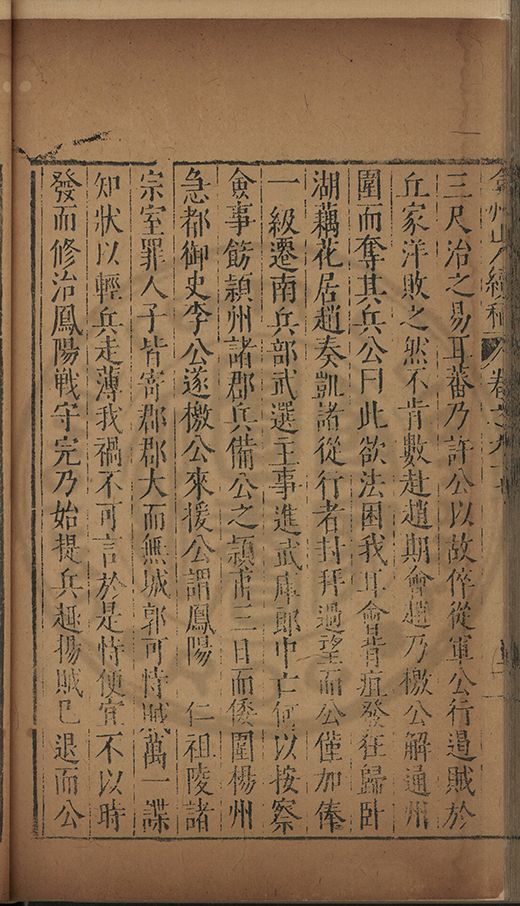 弇州山人續稿 卷之九十
三尺治之易耳蕃乃許公以故倅從軍公行遇賊於
丘家洋敗之然不肯數赴趙期會趙乃檄公解通州
圍而奪其兵公曰此欲法困我耳會背疽發在歸卧
湖藕花居趙奏凱諸從行者封拜過望而公僅加俸
一級遷南兵部武選主事進武庫郎中亡何以按察
僉事飭潁州諸郡兵備公之潁甫三日而倭圍楊州
急都御史李公遂檄公來援公謂鳳陽 仁祖陵諸
宗室罪人子皆寄郡郡大而無城郭可恃賊萬一諜
知狀以輕兵走薄我禍不可言於是恃便宜不以時
發而修治鳳陽戰守完乃始提兵趣揚賊已退而公